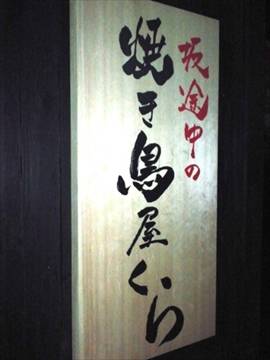 坂途中の
焼き鳥屋くら